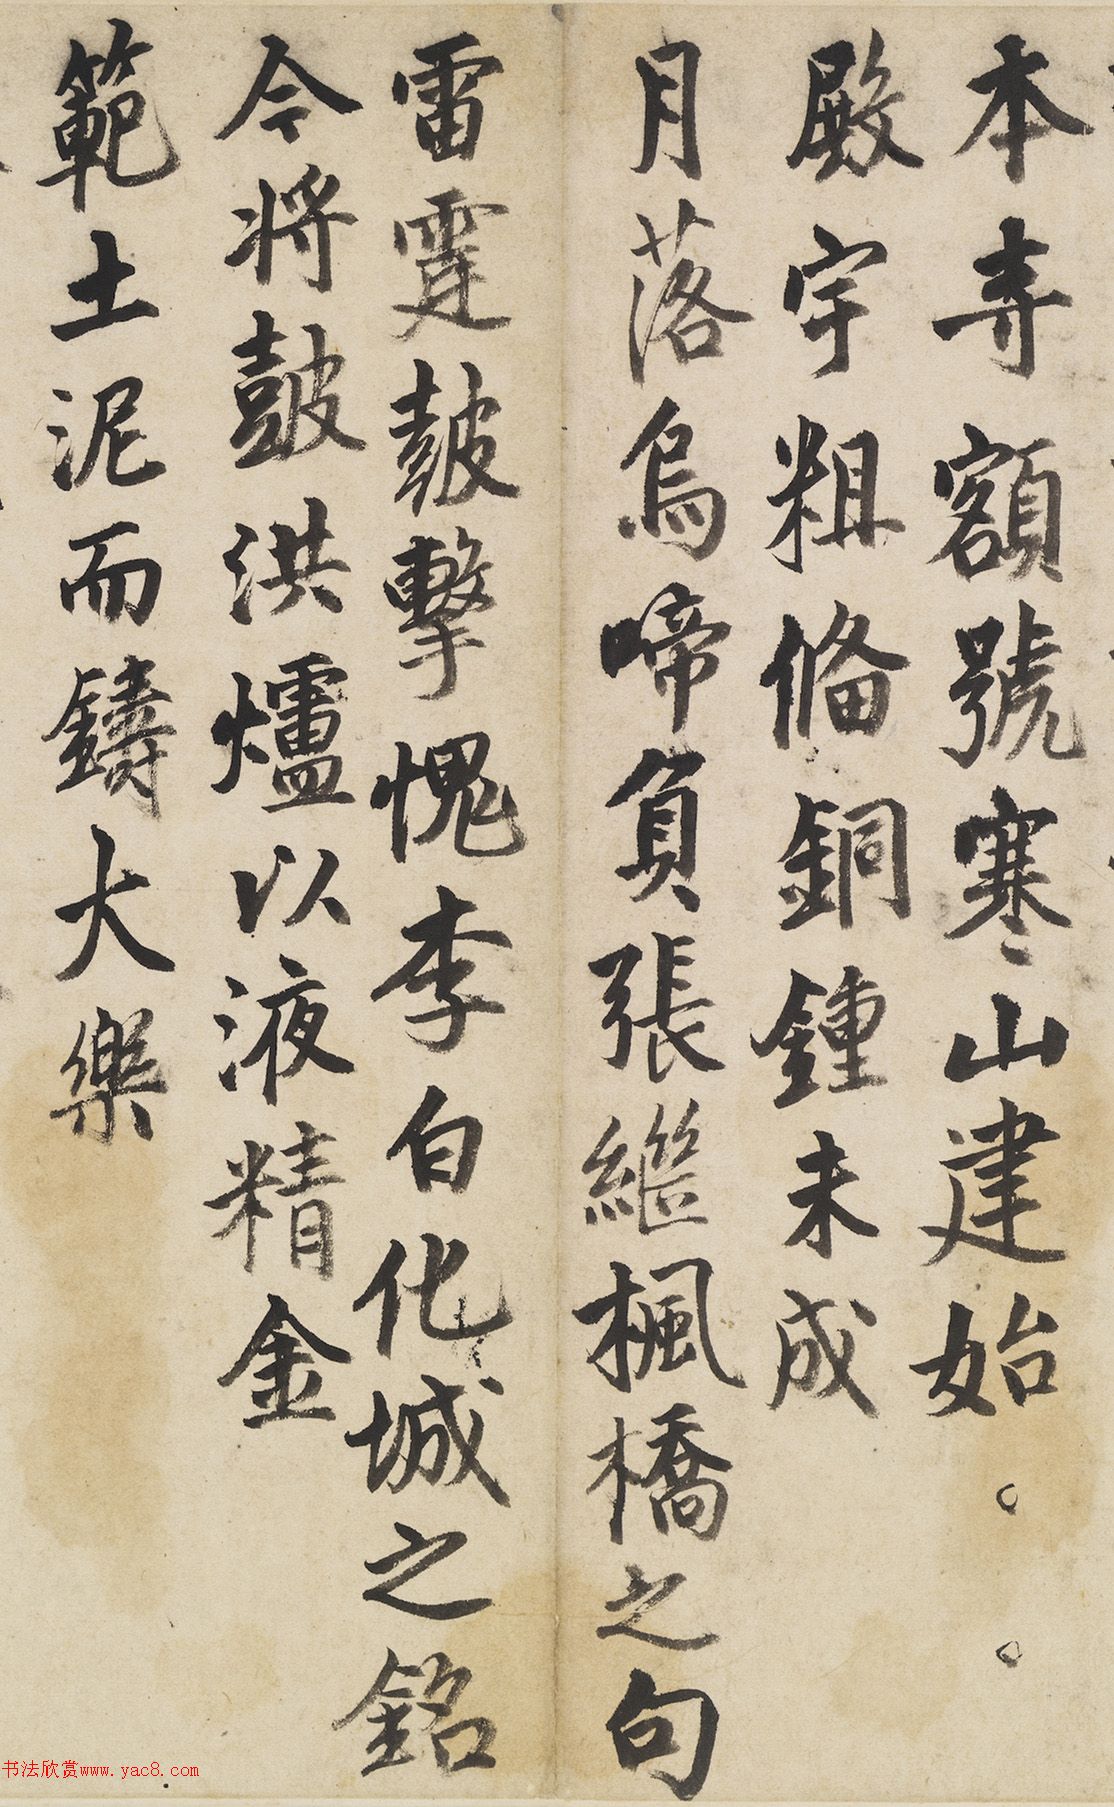 本寺額號寒山建始。。
殿宇粗俻銅鍾未成
月落烏啼負張繼楓橋之句
雷霆皷擊愧李白化城之銘
今將皷洪爐以液精金
範土泥而鑄大樂
书法欣赏www.yac8.com